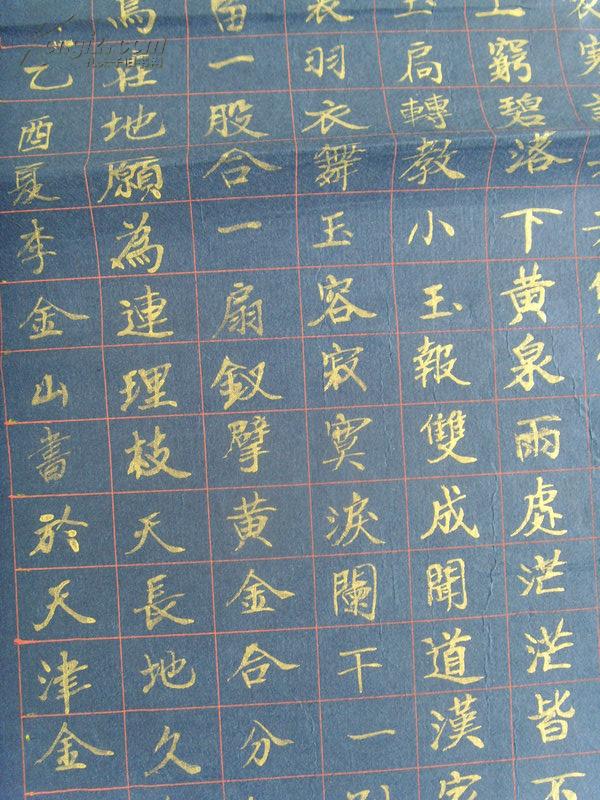 上窮碧落下黃泉兩處茫茫皆不
玉扃轉教小玉報雙成聞道漢家
裳羽衣舞玉容寂寞淚闌干一
留一股合一扇釵擘黃金合分
鳥在地願為連理枝天長地久
乙酉夏李金山書於天津金